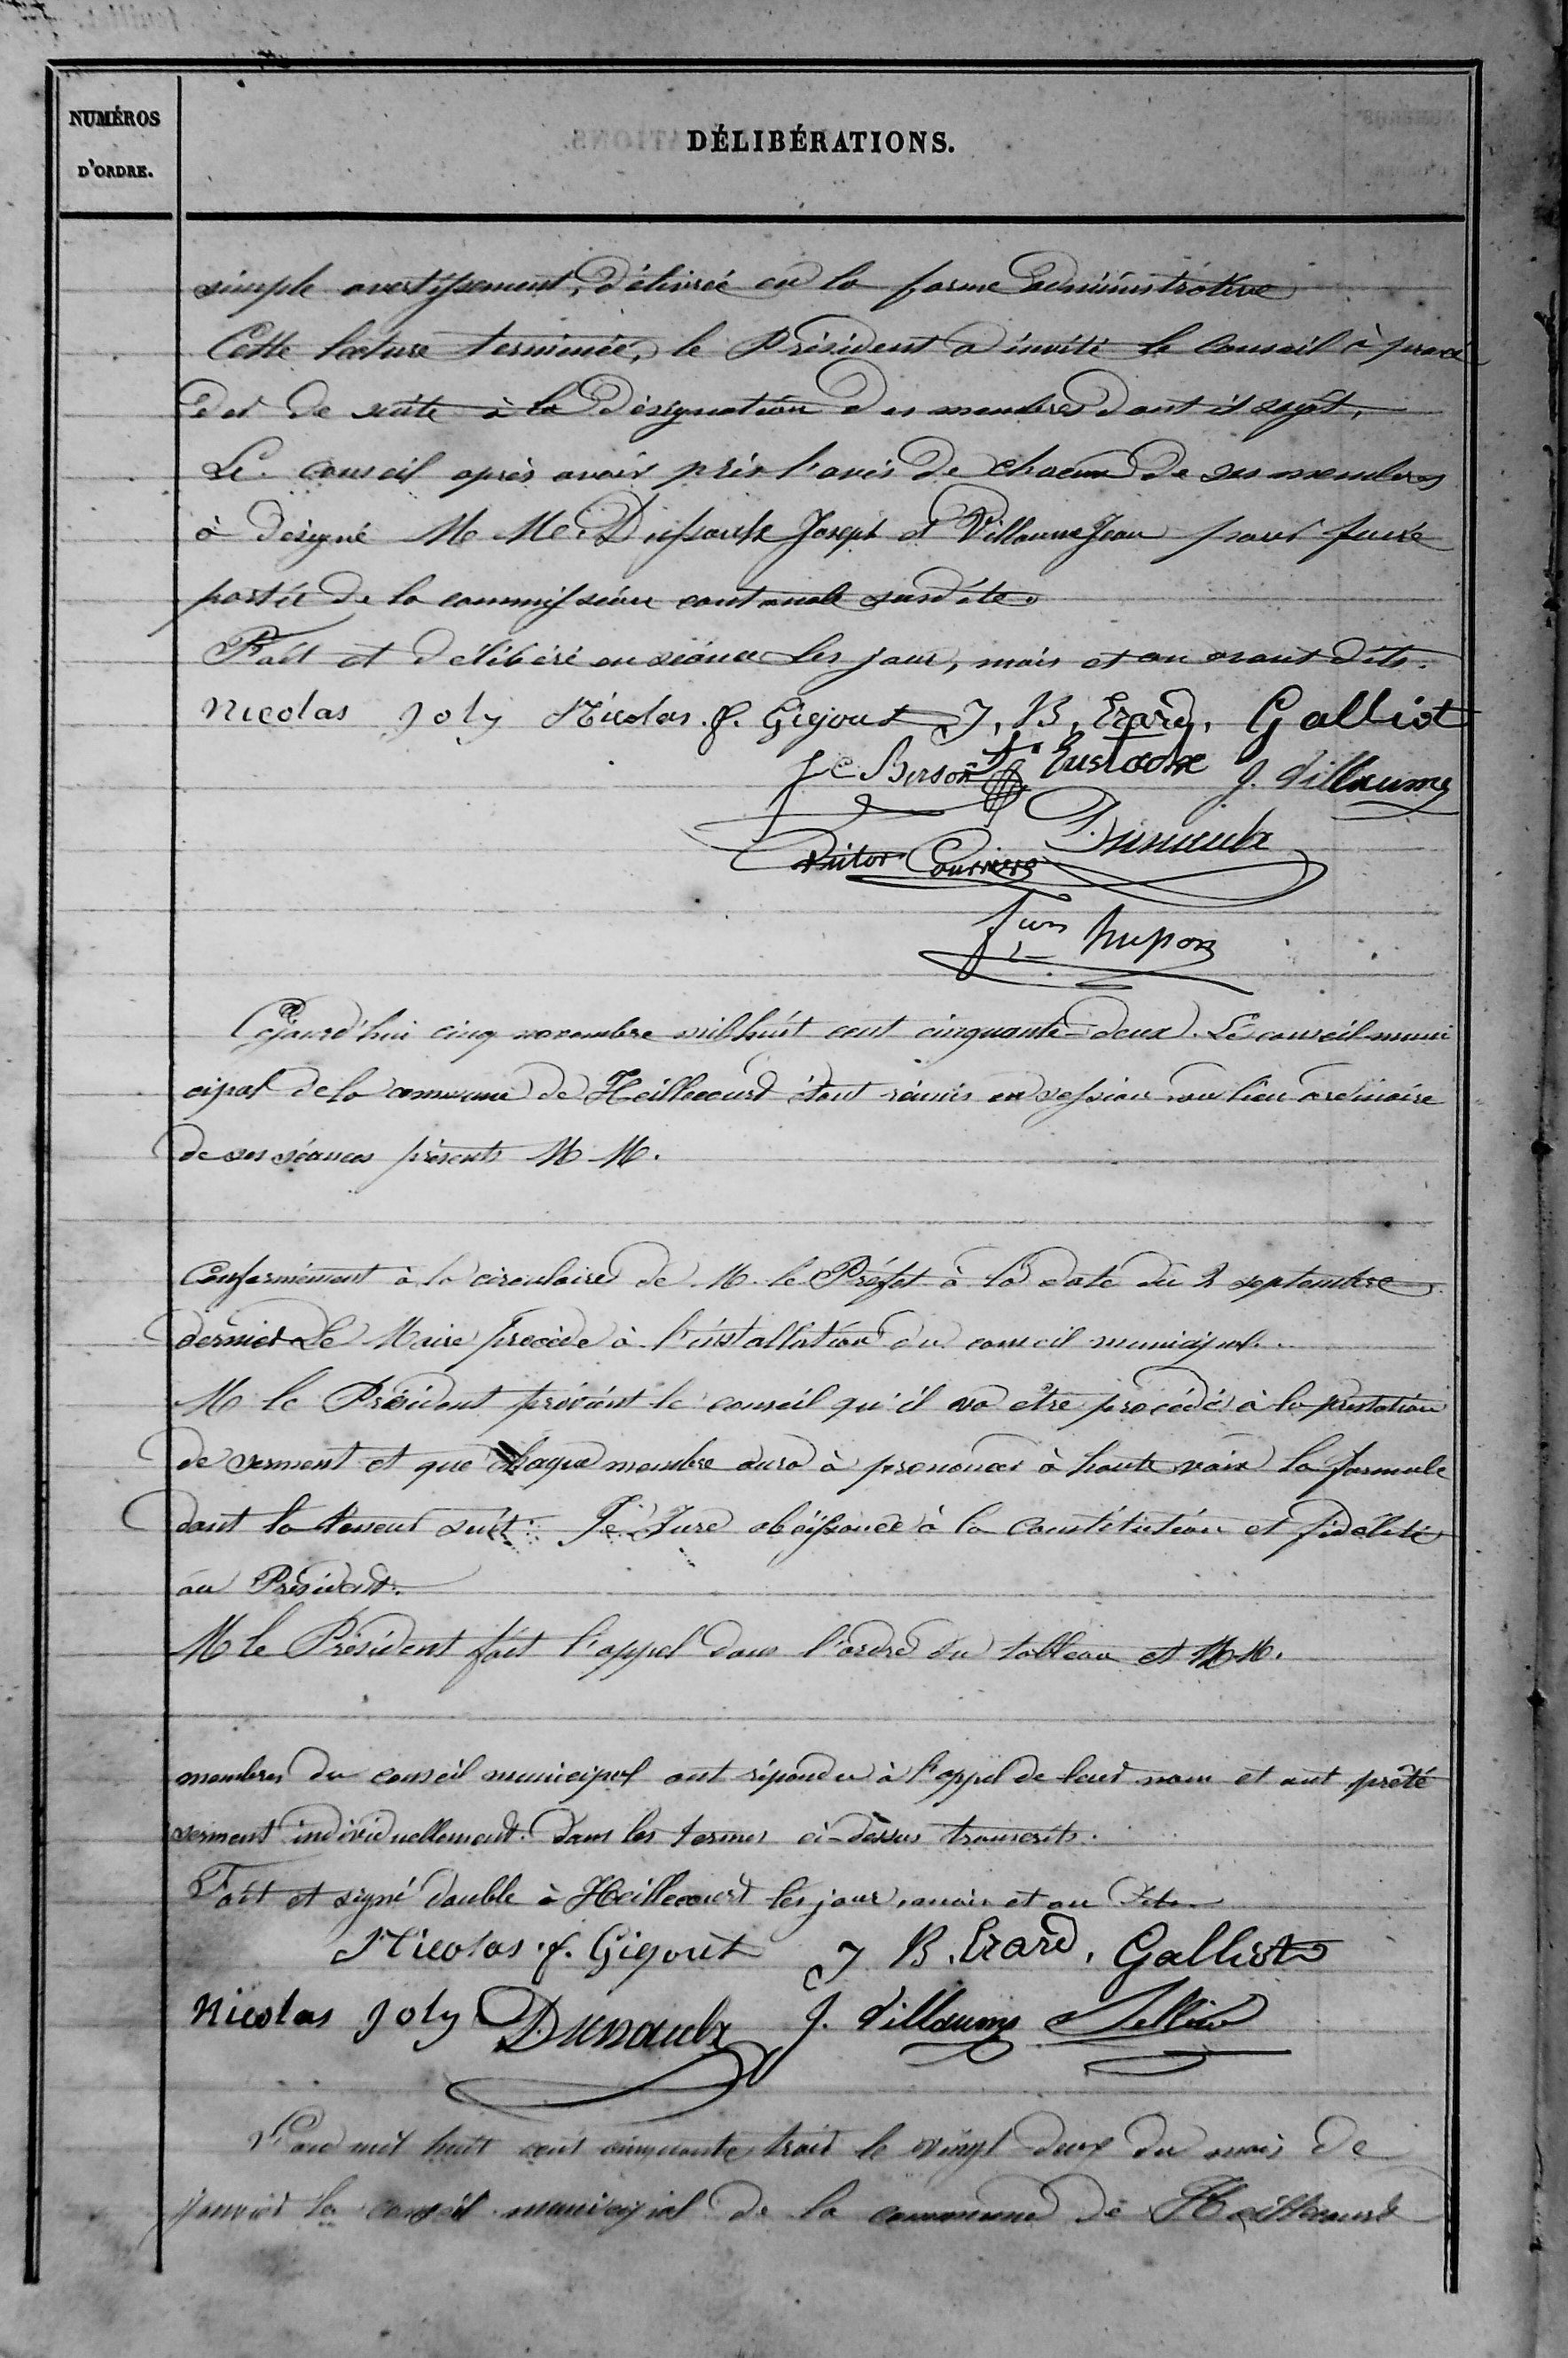 NUMÉROS
D'ORDRE.
DÉLIBÉRATIONS.
simple avertissement, délivrée en la forme administrative
Cette lecture terminée, le Président a invité le Conseil à procé
der de suite à la désignation des membres dont il sagit,
Le conseil après avoir pris l'avis de chacun de ses membres
à désigné M Me. Joseph et Villaume Jean pour faire
partie de la commission cantonale susdite.
Fait et délibéré en séance les jour, mois et an avant dits.
Nicolas Joly Nicolas. f. Gigout J. B. Erard, Galliot
J C Berson Eustache J. Villaume
Victor Courriere Dussaulx
hupon
Cejourd'hui cinq novembre mil huit cent cinquante-deux. Le conseil muni
cipal de la commune de Heillecourt étant réunis en session au lieu ordinaire
de ses séances présents M M.
Conformément à la circulaire de M. le Préfet à la date du 2 septembre
dernier Le Maire procède à l'installation du conseil municipal.
M le Président prévient le conseil qu'il va être procédé à la prestation
de serment et que chaque membre aura à prononcer à haute voix la formule
dont la teneur suit : Je Jure obéissance à la Constitution et fidélité
au Président.
M le Président fait l'appel dans l'ordre du tableau et M M.
membres du conseil municipal ont répondu à l'appel de leur nom et ont prêté
serment individuellement. Dans les termes ci-dessus transcrits.
Fait et signé double à Heillecourt les jour, mois et an dits
Nicolas. f. Gigout J B. Erard, Galliot
Nicolas Joly Dussaulx J. Villaume
L'an mil huit cent cinquante trois le vingt-deux du mois de
janvier le conseil municipal de la commune de Heillecourt